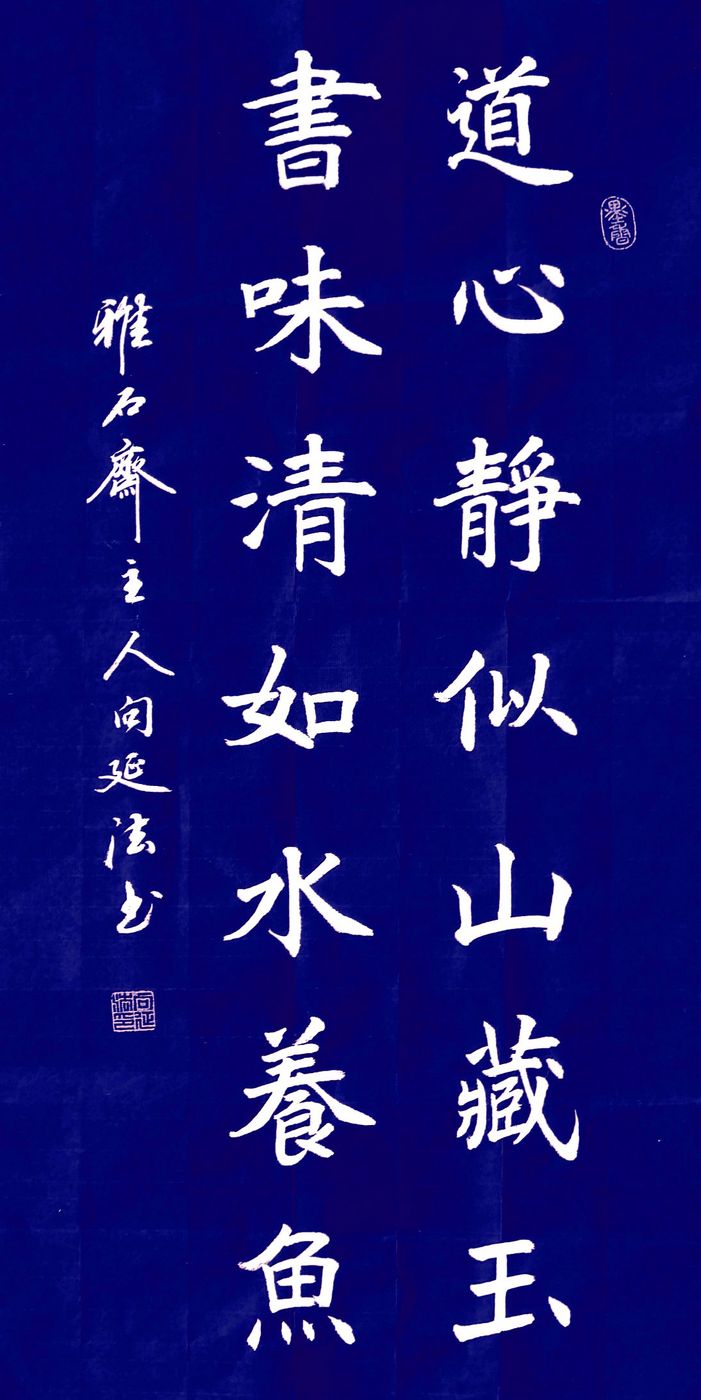 道心靜似山藏玉
書味清如水養魚
雅石齋主人向延法书
墨香
向延法印